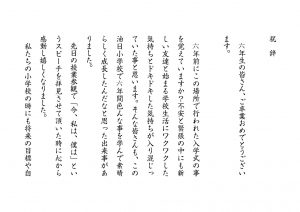 祝辞
六年生の皆さん、ご卒業おめでとうござい
ます。
六年前にこの場所で行われた入学式の事
を覚えていますか？不安と緊張の中にも新
しい友達と始まる学校生活にワクワクした
気持ちとドキドキした気持ちが入り混じっ
ていた事と思います。そんな皆さんも、この
油日小学校で六年間色んな事を学んで素晴
らしく成長したんだなと思った出来事があ
りました。
先日の授業参観で「今、私は、僕は」とい
うスピーチを拝見させて頂いた時に心から
感動し嬉しくなりました。
私たちの小学校の時にも将来の目標や自